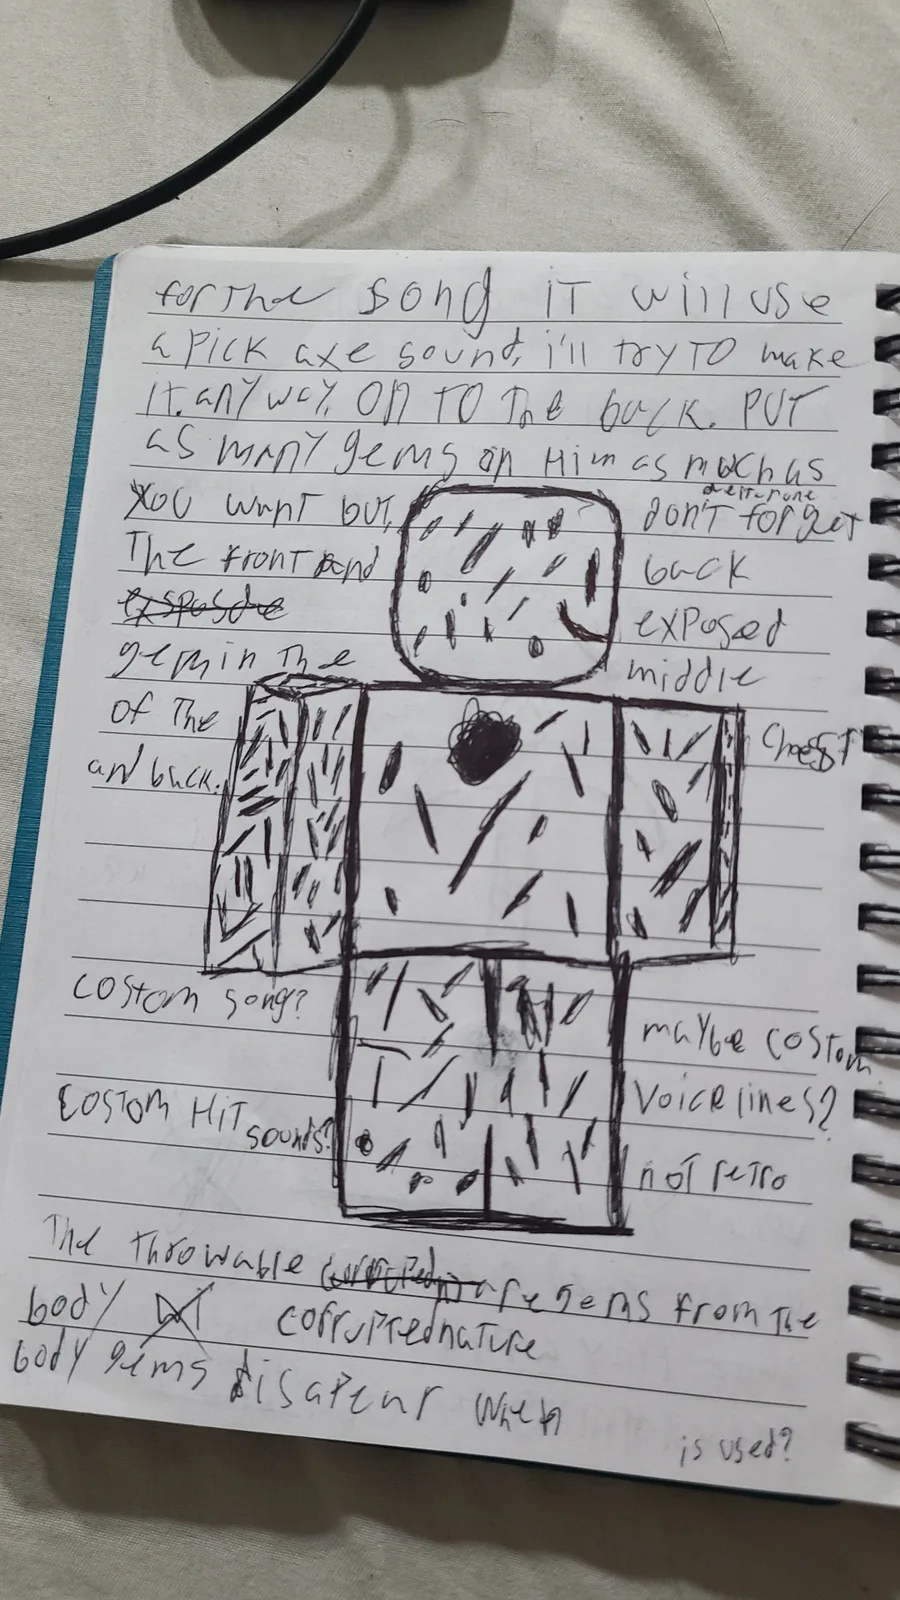 for the song iT will use
a Pick axe sound, i'll try TO make
iT. anyway, On TO The back. PUT
as many gems on Him as much as
You want but, don't forget
The front and back
exposed
gem in The middle
of The Chest
and back.
costom song?
maybe costom
Voice lines?
COSTOM HIT
sounds?
noT retro
The Throwable are gems from The
body corruptednature
body gems disapear when
is used?